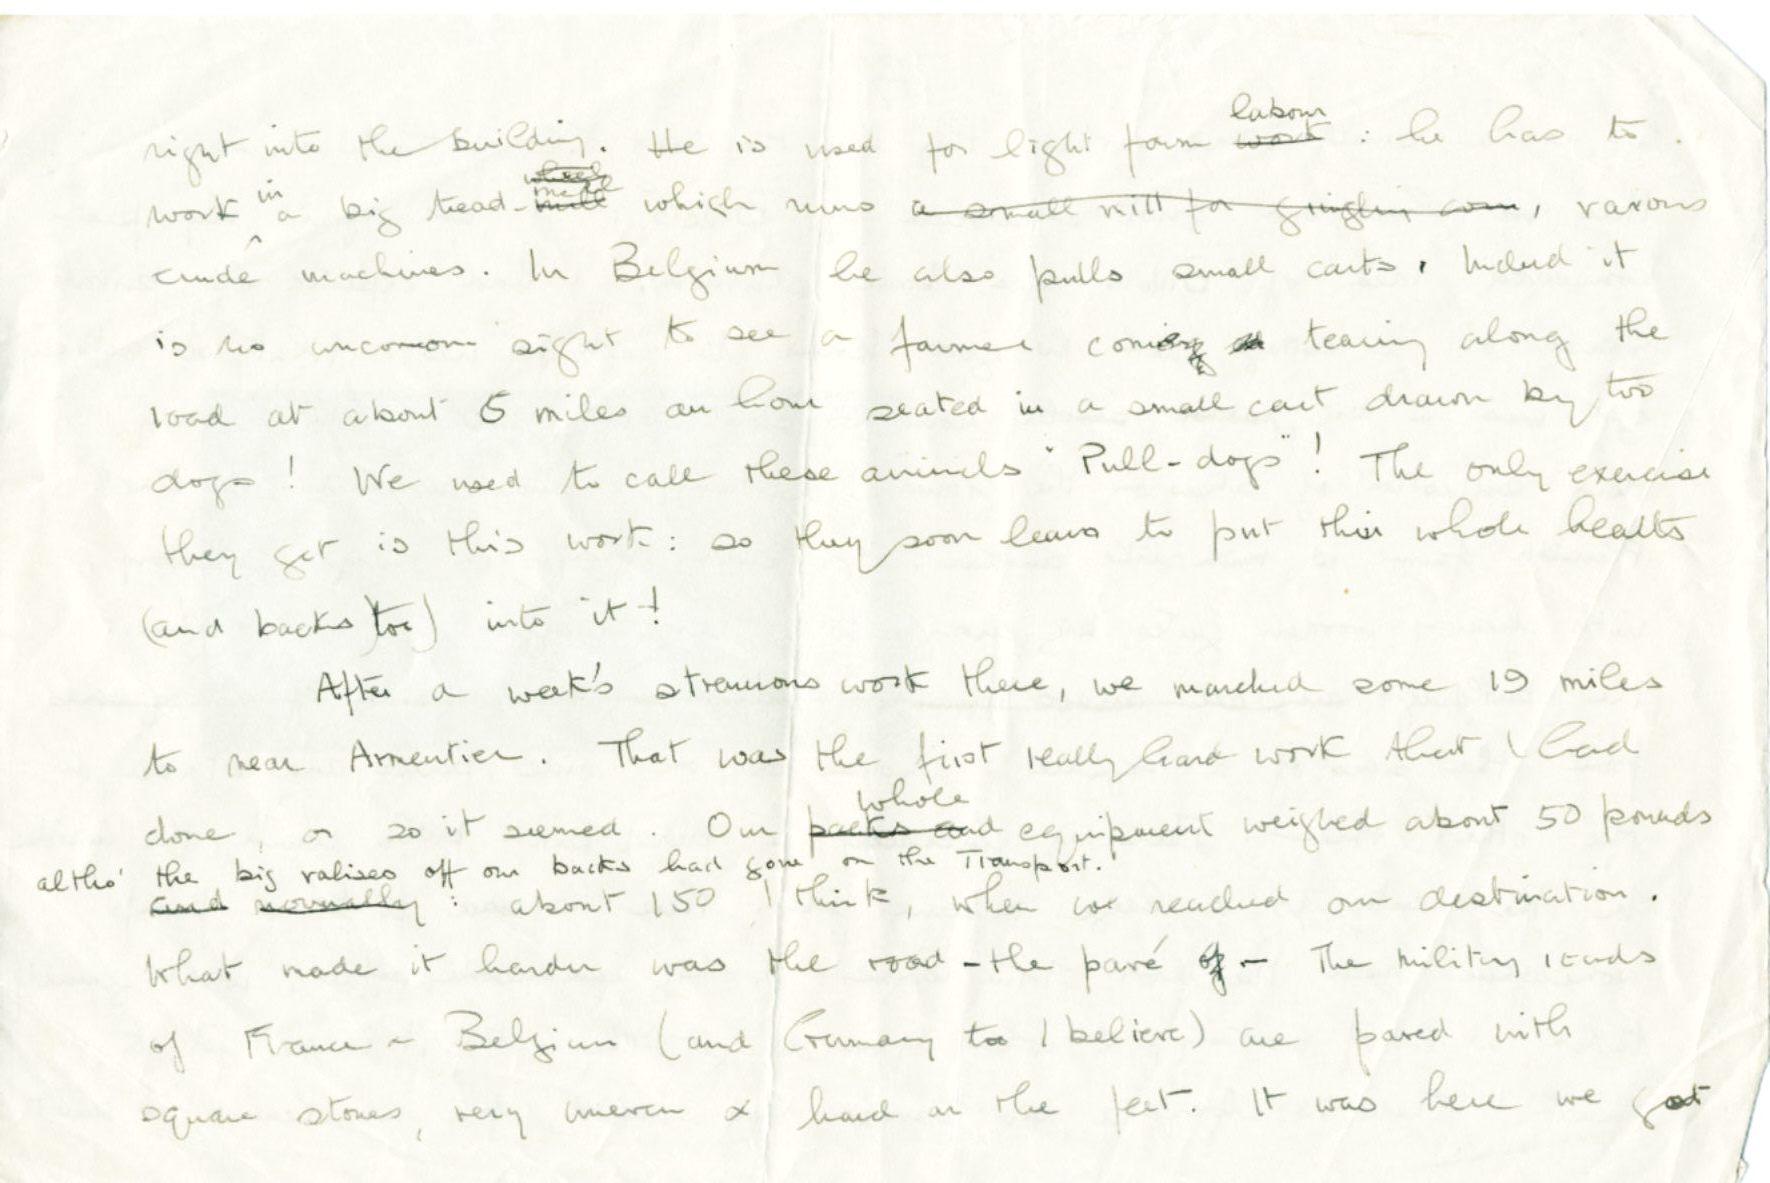 labour
right into the building. He is used for light farm work : he has to
wheel
in
work a big tread-mill which runs a small mill for grinding corn, various
crude machines. In Belgium he also pulls small carts. Indeed it
is no uncommon sight to see a farmer coming tearing along the
road at about 5 miles an hour seated in a small cart drawn by too
dogs! We used to call these animals "Pull-dogs"! The only exercise
they get is this work: so they soon learn to put their whole healts
(and backs too) into it!
After a week's strenuous work there, we marched some 19 miles
to near Armentier. That was the first really hard work that I had
whole
done, or so it seemed. Our packs and equipment weighed about 50 pounds
altho' the big valises off our backs had gone on the Transport.
and normally : about 150 I think, when we reached our destination.
What made it harder was the road - the pavé of - The military roads
of France ~ Belgium (and Germany too I believe) are paved with
square stones, very uneven & hard on the feet. It was here we got